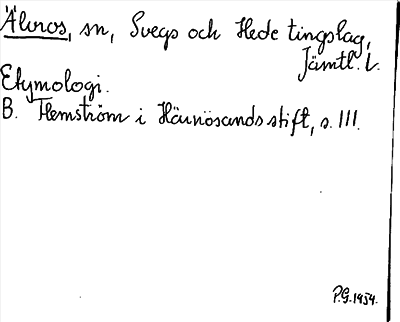 Älvros, sn, Svegs och Hede tingslag,
Jämtl. L.
Etymologi.
B. Flemström i Härnösands stift, s. 111.
P.G. 1954.